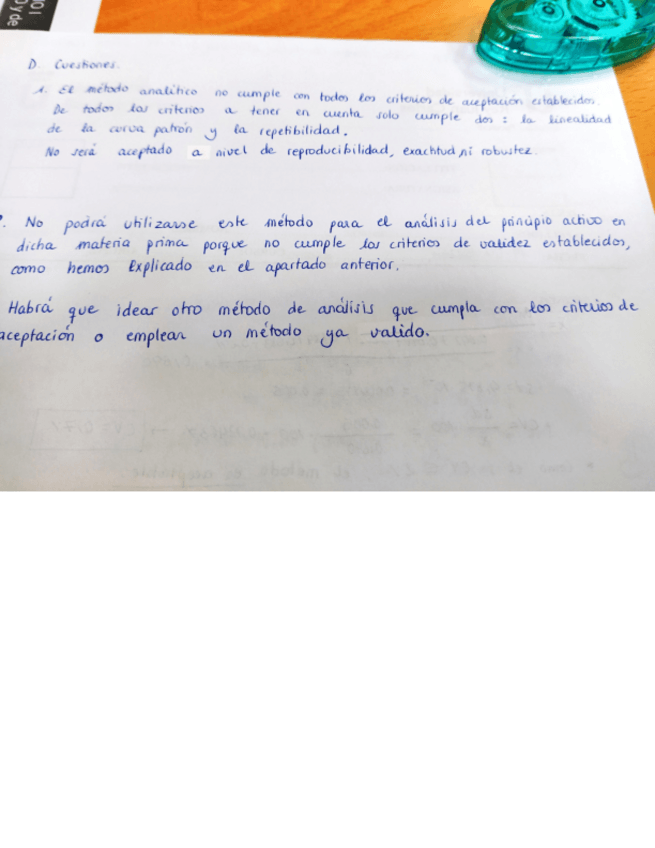 001
Dyde
D. Cuestiones.
1. El método analítico no cumple con todos los criterios de aceptación establecidos.
De todos los criterios a tener en cuenta solo cumple dos: la linealidad
de la curva patrón y la repetibilidad.
No será aceptado a nivel de reproducibilidad, exactitud ni robustez.
No podrá utilizarse este método para el análisis del principio activo en
dicha materia prima porque no cumple los criterios de validez establecidos,
como hemos Explicado en el apartado anterior.
Habrá que idear otro método de análisis que cumpla con los criterios de
aceptación o emplear un método ya valido.